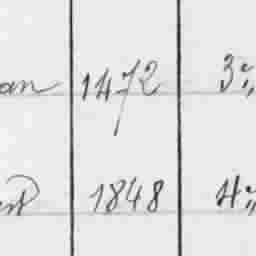 an 1472 3
1848 4